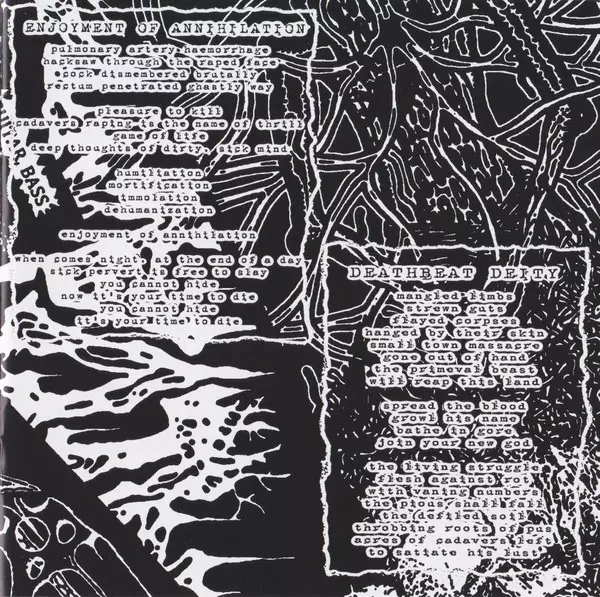 ENJOYMENT OF ANNIHILATION
pulmonary artery haemorrhage
hacksaw through the raped face
cock dismembered brutally
rectum penetrated ghastly way
pleasure to kill
cadavers raping is the name of thrill
game of life
deep thoughts of dirty, sick mind
humiliation
mortification
immolation
dehumanization
enjoyment of annihilation
when comes night, at the end of a day
sick pervert is free to slay
you cannot hide
now it's your time to die
you cannot hide
it's your time to die
BASS
DEATHBEAT DEITY
mangled limbs
strewn guts
flayed corpses
hanged by their skin
small town massacre
gone out of hand
the primeval beast
will reap this land
spread the blood
growl his name
bathe in gore
join your new god
the living struggle
flesh against rot
with waning numbers
the pious shall fall
the defiled soil
throbbing roots of pus
acres of cadavers left
to satiate his lust